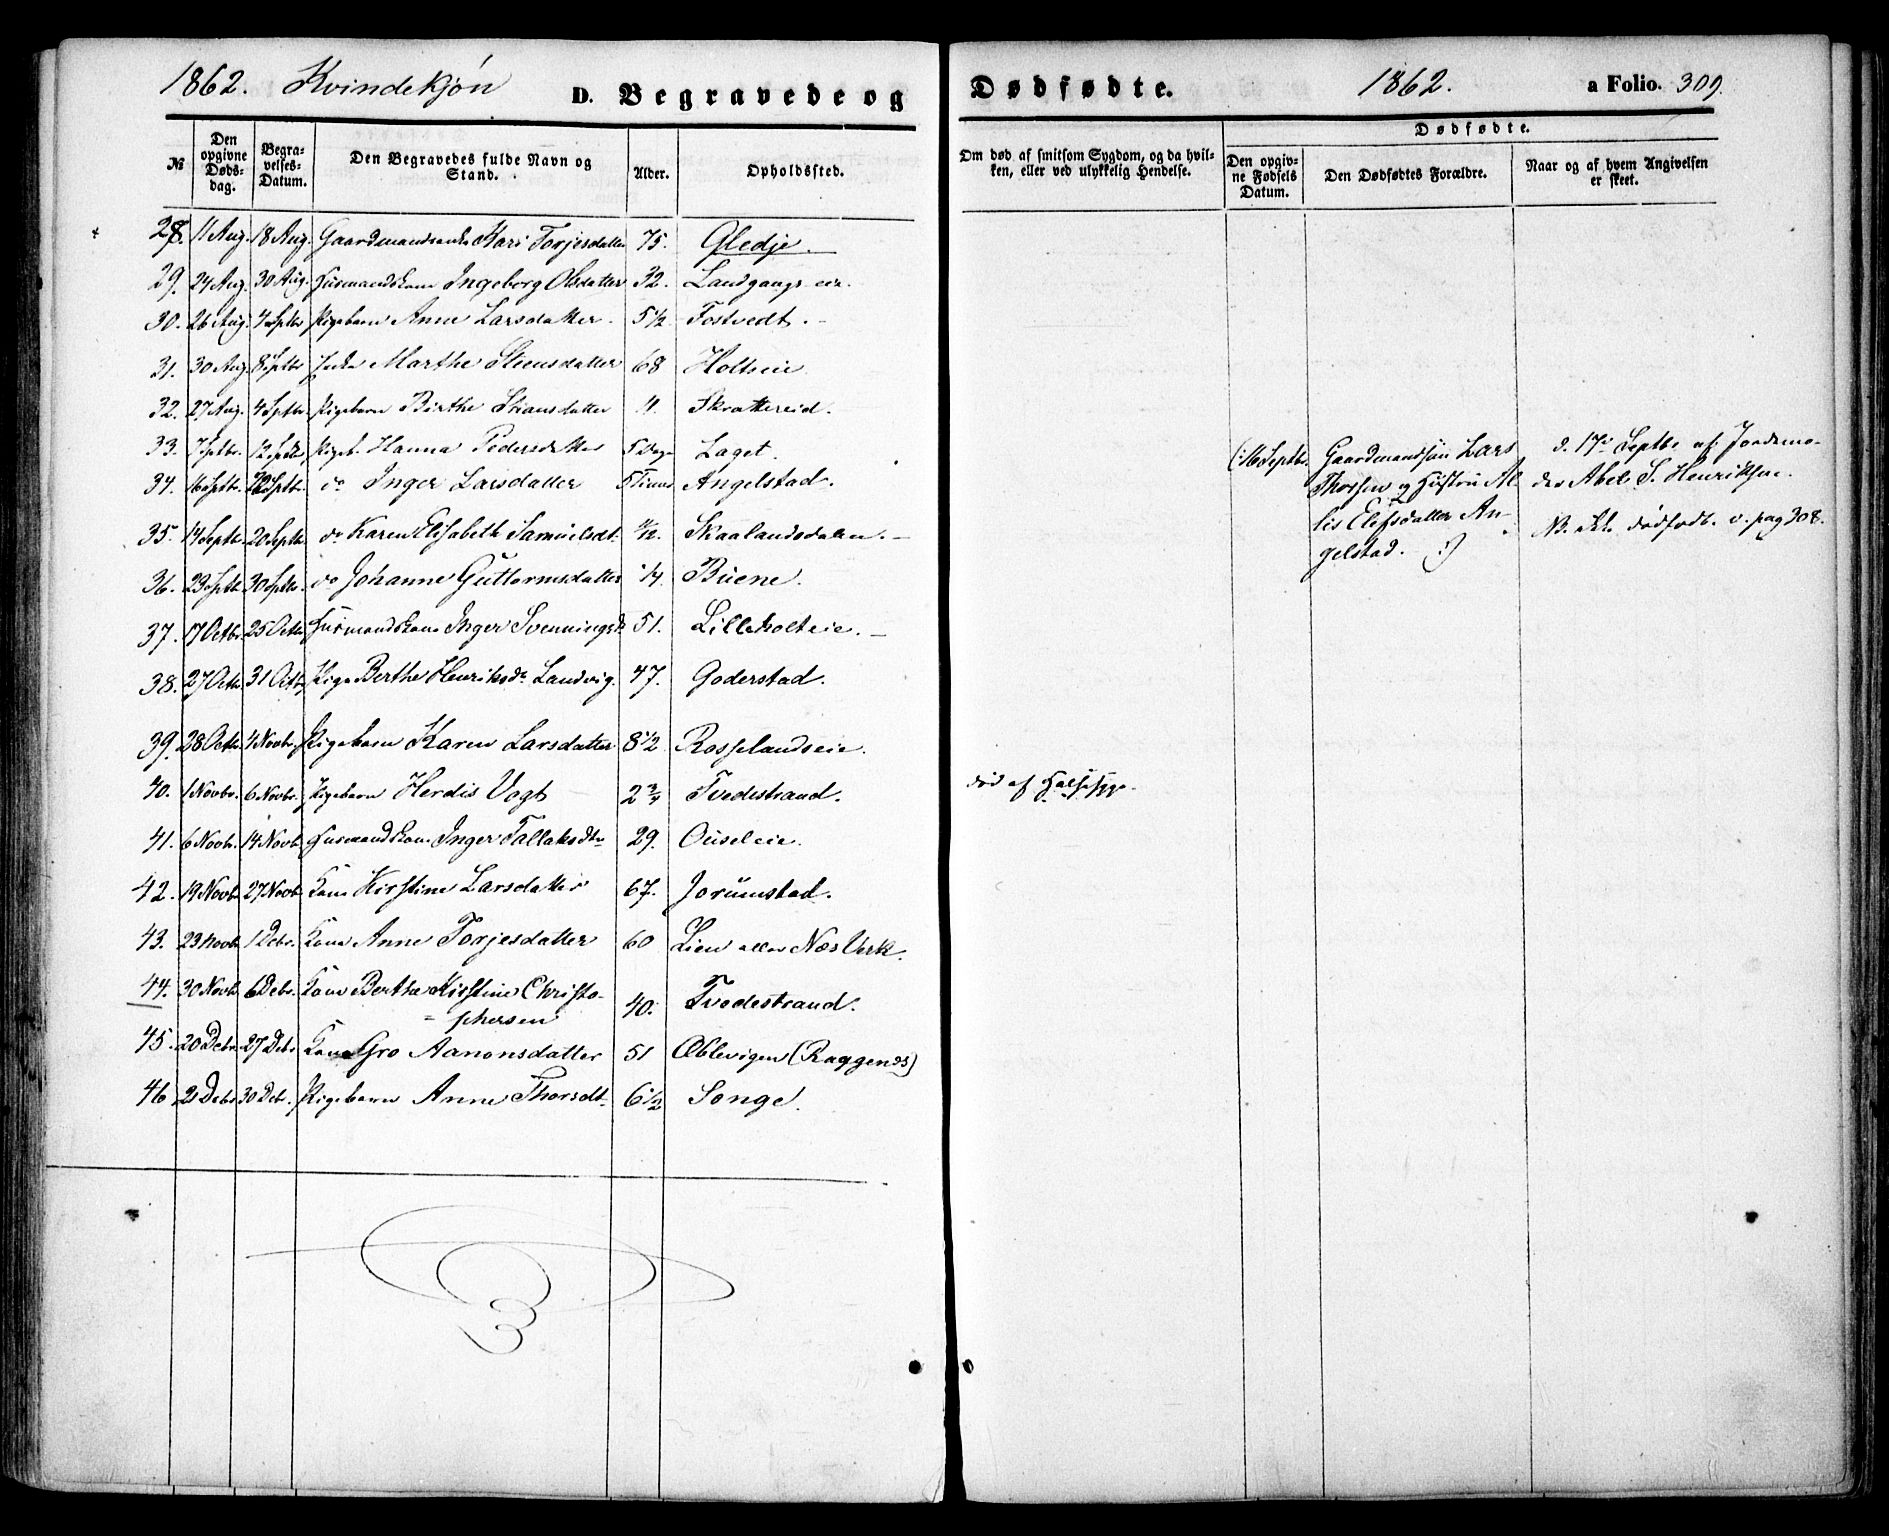 1862. Kvindekjøn D. Begravede og
Dødfødte. 1862. a Folio. 309.
№ Den opgivne Dødsdag. Begravelses-Datum. Den Begravedes fulde Navn og Stand. Alder. Opholdssted.
Om død af smitsom Sygdom, og da hvilken, eller ved ulykkelig Hendelse.
Dødfødte.
Den opgivne Fødsels Datum. Den Dødfødtes Forældre. Naar og af hvem Angivelsen er skeet.
28. 11 Aug. 18 Aug. Gaardmandsenke Kari Torjesdatter 75. Gledje.
29. 24 Aug. 30 Aug. Husmandskone Ingeborg Olsdatter 32. Landgangs eie.
30. 26 Aug. 4 Septbr Pigebarn Anne Larsdatter. 5 1/2 Fostvedt.
31. 30 Aug. 8 Septbr Enke Marthe Steensdatter 68 Holteie.
32. 27 Aug. 4 Septbr. Pigebarn Birthe Stiansdatter 11. Skrattereid.
33. 7 Septbr. 12 Septbr Pigeb. Hanna Pedersdatter 5 Dage Laget.
34. 16 Septbr. Septbr. do Inger Larsdatter 5 Timer Angelstad.
35. 14 Septbr. 20 Septbr do Karen Elisabeth Samuelsdt. 1/2. Skaalandsdalen.
36. 23 Septbr 30 Septbr. do Johanne Guttormsdatter 1/4. Buene.
37. 17 Octbr. 25 Octbr Husmandskone Inger Svenningsdt 51. Lilleholteie.
38. 27 Octbr. 31 Octbr Pige Berthe Henriksdr Landvig. 47. Goderstad.
39. 28 Octbr. 4 Novbr. Pigebarn Karen Larsdatter 8 1/2 Rosselandseie.
40. 1 Novbr. 6 Novbr. Pigebarn Herdis Vogt 2 3/4 Tvedestrand. død af Halssyge.
41. 6 Novbr. 14 Novbr Husmandskone Inger Tallaksdtr 29. Ouseleie.
42. 19 Novbr 27 Novbr Kone Kirstine Larsdatter 67. Jorumstad.
43. 23 Novbr 1 Debr. Kone Anne Torjesdatter 60 Lien eller Næs Verk.
44. 30 Novbr 6 Debr. Kone Berthe Kirstine Christo-
phersen 40. Tvedestrand.
45. 20 Debr. 27 Debr Kone Gro Aanonsdatter 51 Æblevigen (Raggends)
46. 21 Debr 30 Debr. Pigebarn Anne Thorsdt. 6 1/2 Songe.
(: 16 Septbr. Gaardmandsøn Lars
Thorsen og Hustru Al-
lis Elefsdatter An-
gelstad. :)
d. 17de Septbr af Jordemo-
der Abel S. Henriksen.
NB. ikke dødfødt. v. pag 308.